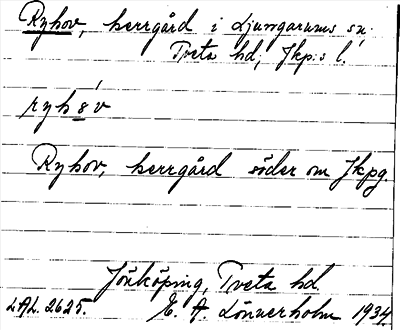 Ryhov, herrgård i Ljungarums sn;
Tveta hd; Jkp:s l.
ryhs´v
Ryhov, herrgård söder om Jkpg
Jönköping, Tveta hd.
LAL. 2625. E. A. Lönnerholm 1934